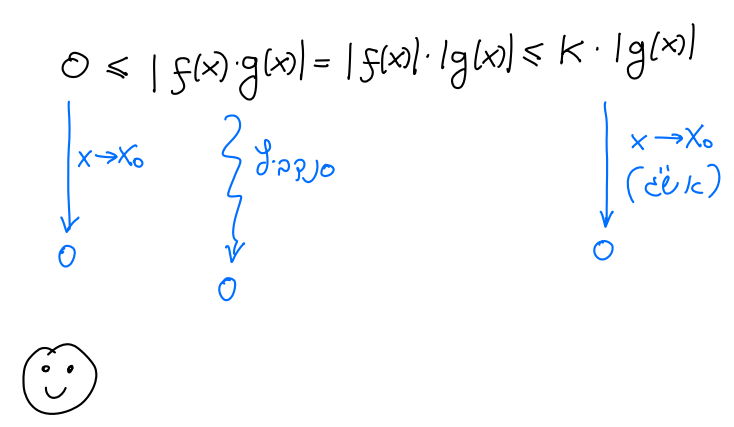 0 ≤ |f(x)·g(x)| = |f(x)|·|g(x)| ≤ K·|g(x)|
x→x₀ סנדביץ x→x₀
0 0
0